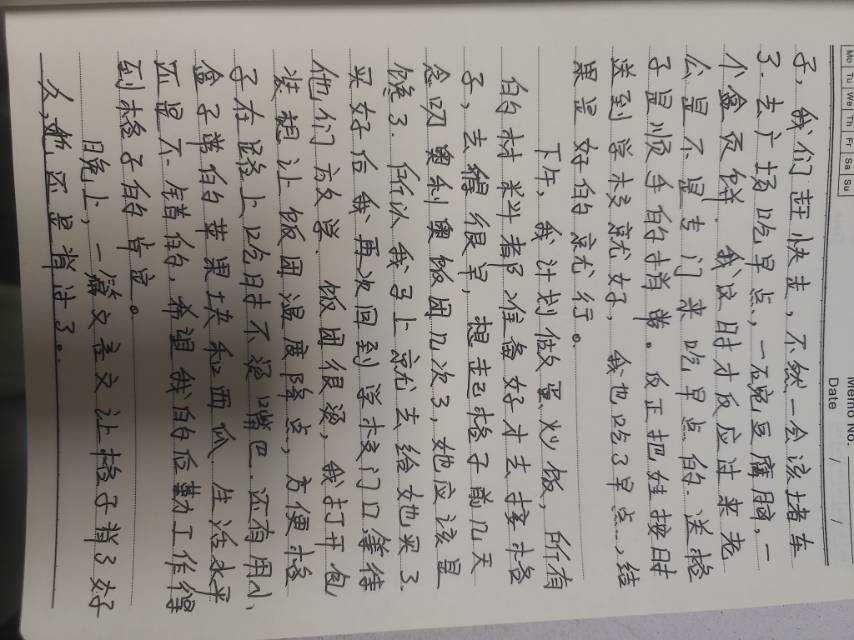 Mo Tu We Th Fr Sa Su
Memo No.
Date / /
子，我们赶快走，不然一会该堵车
了.去广场吃早点，一碗豆腐脑，一
个盒页饼.我这时才反应过来老
公是不是专门来吃早点的.送格
子是顺手的捎带。反正把娃按时
送到学校就好，我也吃了早点，结
果是好的就行。
下午，我计划做蛋炒饭，所有
的材料都准备好才去接格
子，去得很早，想起格子前几天
念叨奥利奥饭团几次了，她应该是
馋了.所以我马上就去给她买了.
买好后我再次回到学校门口等待
他们放学.饭团很烫，我打开包
装想让饭团温度降点，方便格
子在路上吃时不烫嘴巴.还有用小
盒子带的苹果块和西瓜.生活水平
还是不错的，希望我的后勤工作得
到格子的肯定。
晚上，一篇文言文让格子背了好
久，她还是背过了。